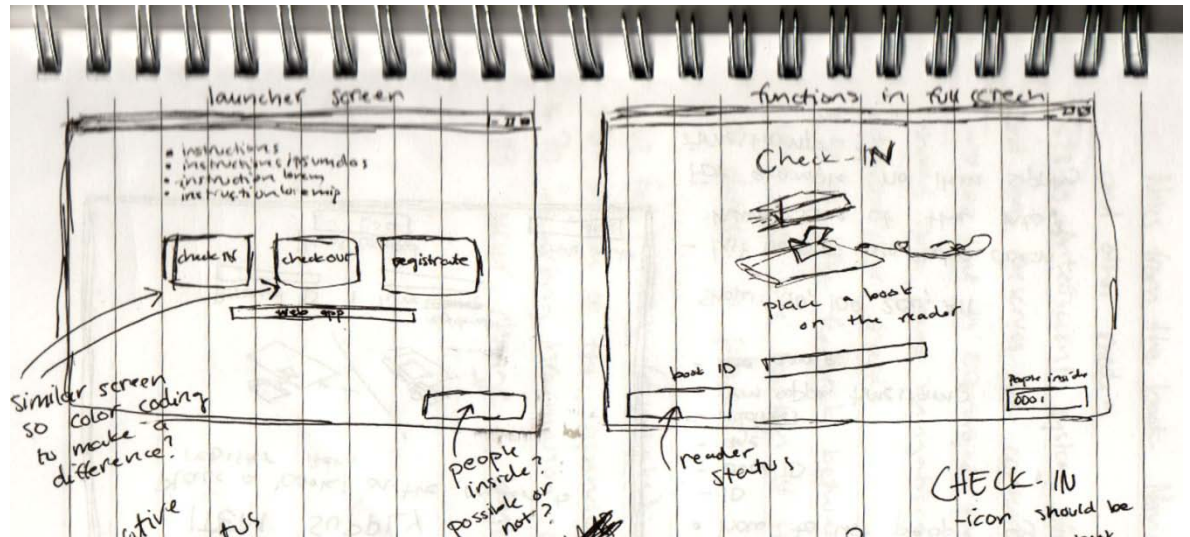 launcher screen
• instructions
• instructions ipsumdos
• instruction lorem
• instruction loremip
check IN
check out
registrate
web app
Similar screen
so color coding
to make a
difference?
people
inside?
possible or
not?
functions in full screen
Check-IN
place a book
on the reader
book ID
people inside
0001
reader
status
CHECK-IN
-icon should be